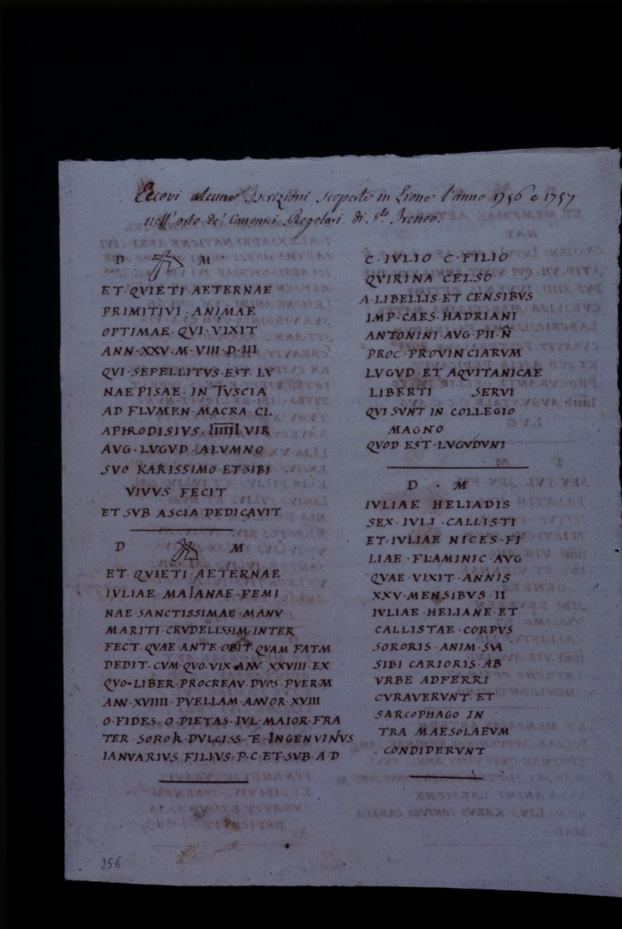 Eccovi alcune Iscrizioni scoperte in Lione l'anno 1756 e 1757
nell'orto de' Canonici Regolari di Sto Ireneo.
D M
ET·QVIETI·AETERNAE
PRIMITIVI·ANIMAE
OPTIMAE·QVI·VIXIT
ANN·XXV·M·VIII·D·III
QVI·SEPELLITVS·EST·LV
NAE PISAE·IN TVSCIA
AD FLVMEN·MACRA·CL·
APHRODISIVS·IIIIII VIR
AVG·LVGVD·ALVMNO
SVO KARISSIMO·ET·SIBI
VIVVS FECIT
ET·SVB·ASCIA·DEDICAVIT
D M
ET·QVIETI·AETERNAE
IVLIAE MAIANAE·FEMI
NAE·SANCTISSIMAE·MANV
MARITI·CRVDELISSIM·INTER
FECT·QVAE·ANTE·OBIT·QVAM·FATM
DEDIT·CVM·QVO·VIX·ANN·XXVIII·EX
QVO·LIBER·PROCREAV·DVOS·PVERM
ANN·XVIIII·PVELLAM·ANNOR·XVIII
O·FIDES·O·PIETAS·IVL·MAIOR·FRA
TER·SOROR·DVLCISS·E·INGENVINVS
IANVARIVS FILIVS·P·C·ET·SVB·A·D
C·IVLIO C·FILIO
QVIRINA CELSO
A·LIBELLIS ET CENSIBVS
IMP·CAES·HADRIANI
ANTONINI AVG·PII·N
PROC·PROVINCIARVM
LVGVD·ET AQVITANICAE
LIBERTI SERVI
QVI SVNT IN COLLEGIO
MAGNO
QVOD EST·LVGVDVNI
D·M
IVLIAE HELIADIS
SEX·IVLI·CALLISTI
ET·IVLIAE NICES·FI
LIAE·FLAMINIC AVG
QVAE·VIXIT·ANNIS
XXV·MENSIBVS·II
IVLIAE HELIANE·ET
CALLISTAE·CORPVS
SORORIS·ANIM·SVA
SIBI CARIORIS·AB
VRBE ADFERRI
CVRAVERVNT·ET
SARCOPHAGO IN
TRA MAESOLAEVM
CONDIDERVNT
256